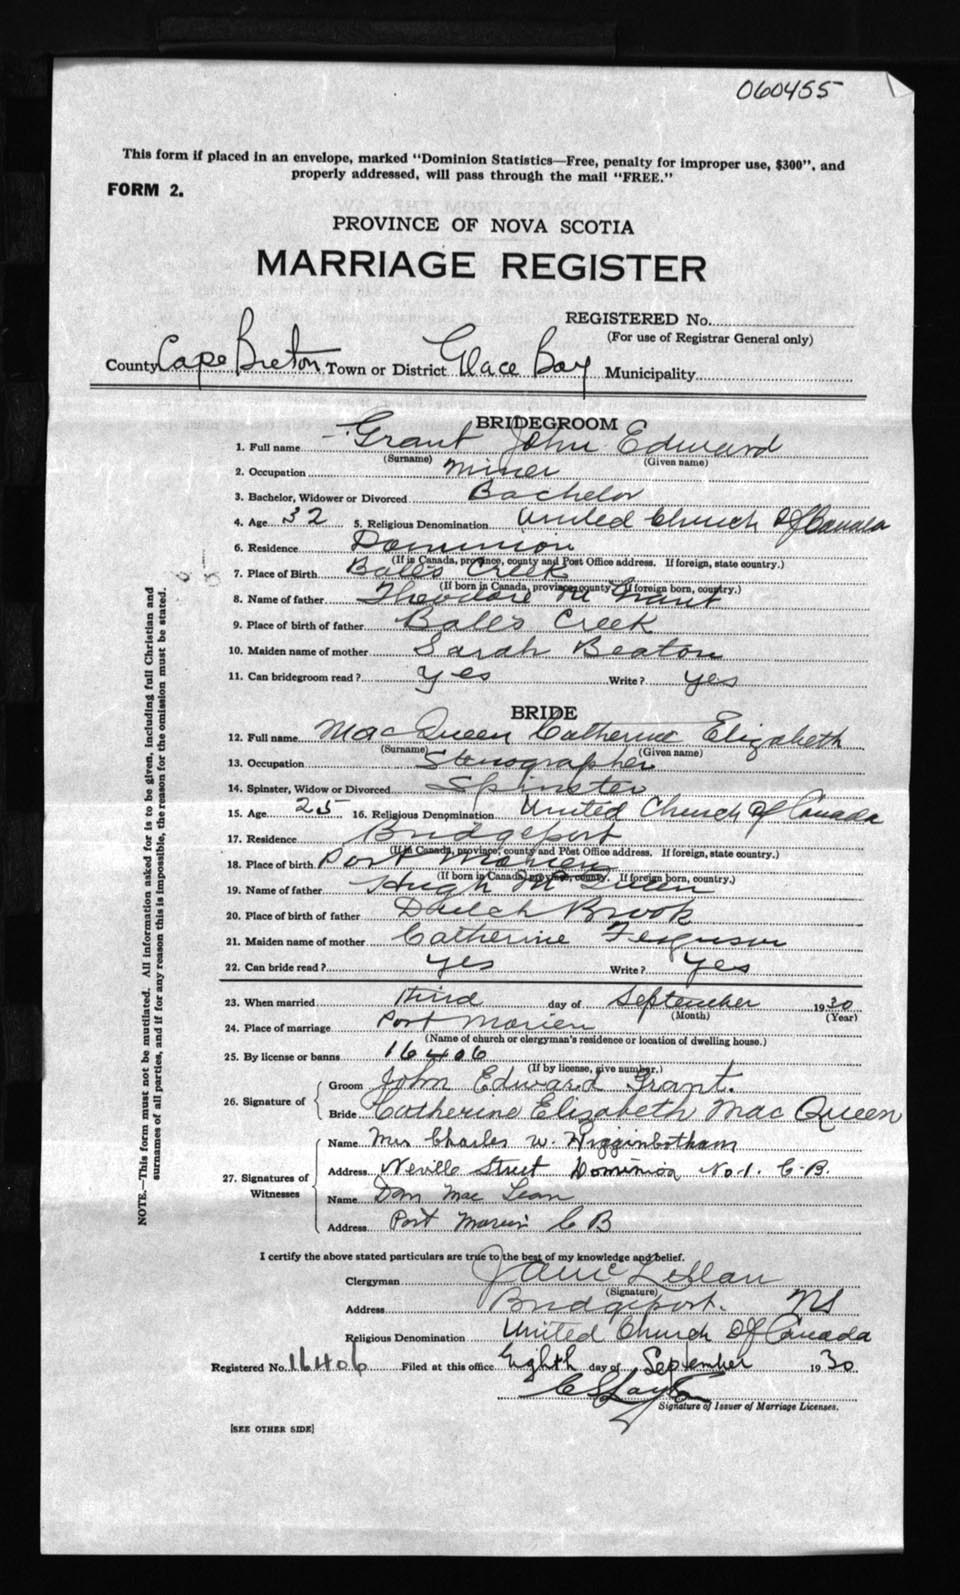 060455
This form if placed in an envelope, marked "Dominion Statistics—Free, penalty for improper use, $300", and
properly addressed, will pass through the mail "FREE."
FORM 2.
PROVINCE OF NOVA SCOTIA
MARRIAGE REGISTER
REGISTERED No.
(For use of Registrar General only)
County Cape Breton Town or District Glace Bay Municipality
BRIDEGROOM
1. Full name Grant John Edward
(Surname) (Given name)
2. Occupation Miner
3. Bachelor, Widower or Divorced Bachelor
4. Age 32 5. Religious Denomination United Church Of Canada
6. Residence Dominion
(If in Canada, province, county and Post Office address. If foreign, state country.)
7. Place of Birth Balls Creek
(If born in Canada, province, county. If foreign born, country.)
8. Name of father Theodore Grant
9. Place of birth of father Balls Creek
10. Maiden name of mother Sarah Beaton
11. Can bridegroom read? yes Write? yes
BRIDE
12. Full name MacQueen Catherine Elizabeth
(Surname) (Given name)
13. Occupation Stenographer
14. Spinster, Widow or Divorced Spinster
15. Age 25 16. Religious Denomination United Church Of Canada
17. Residence Bridgeport
(If in Canada, province, county and Post Office address. If foreign, state country.)
18. Place of birth Port Morien
(If born in Canada, province, county. If foreign born, country.)
19. Name of father Hugh McQueen
20. Place of birth of father Brook
21. Maiden name of mother Catherine Ferguson
22. Can bride read? yes Write? yes
23. When married third day of September 1930
(Month) (Year)
24. Place of marriage Port Morien
(Name of church or clergyman's residence or location of dwelling house.)
25. By license or banns 16406
(If by license, give number.)
26. Signature of
Groom John Edward Grant.
Bride Catherine Elizabeth MacQueen
27. Signatures of Witnesses
Name Mrs Charles W. Higginbotham
Address Neville Street Dominion No 1. C.B.
Name Dan MacLean
Address Port Morien C B
I certify the above stated particulars are true to the best of my knowledge and belief.
Clergyman
(Signature)
Address Bridgeport. NS
Religious Denomination United Church Of Canada
Registered No. 16406 Filed at this office Eighth day of September 1930
Signature of Issuer of Marriage Licenses.
[SEE OTHER SIDE]
NOTE.—This form must not be mutilated. All information asked for is to be given, including full Christian and
surnames of all parties, and if for any reason this is impossible, the reason for the omission must be stated.